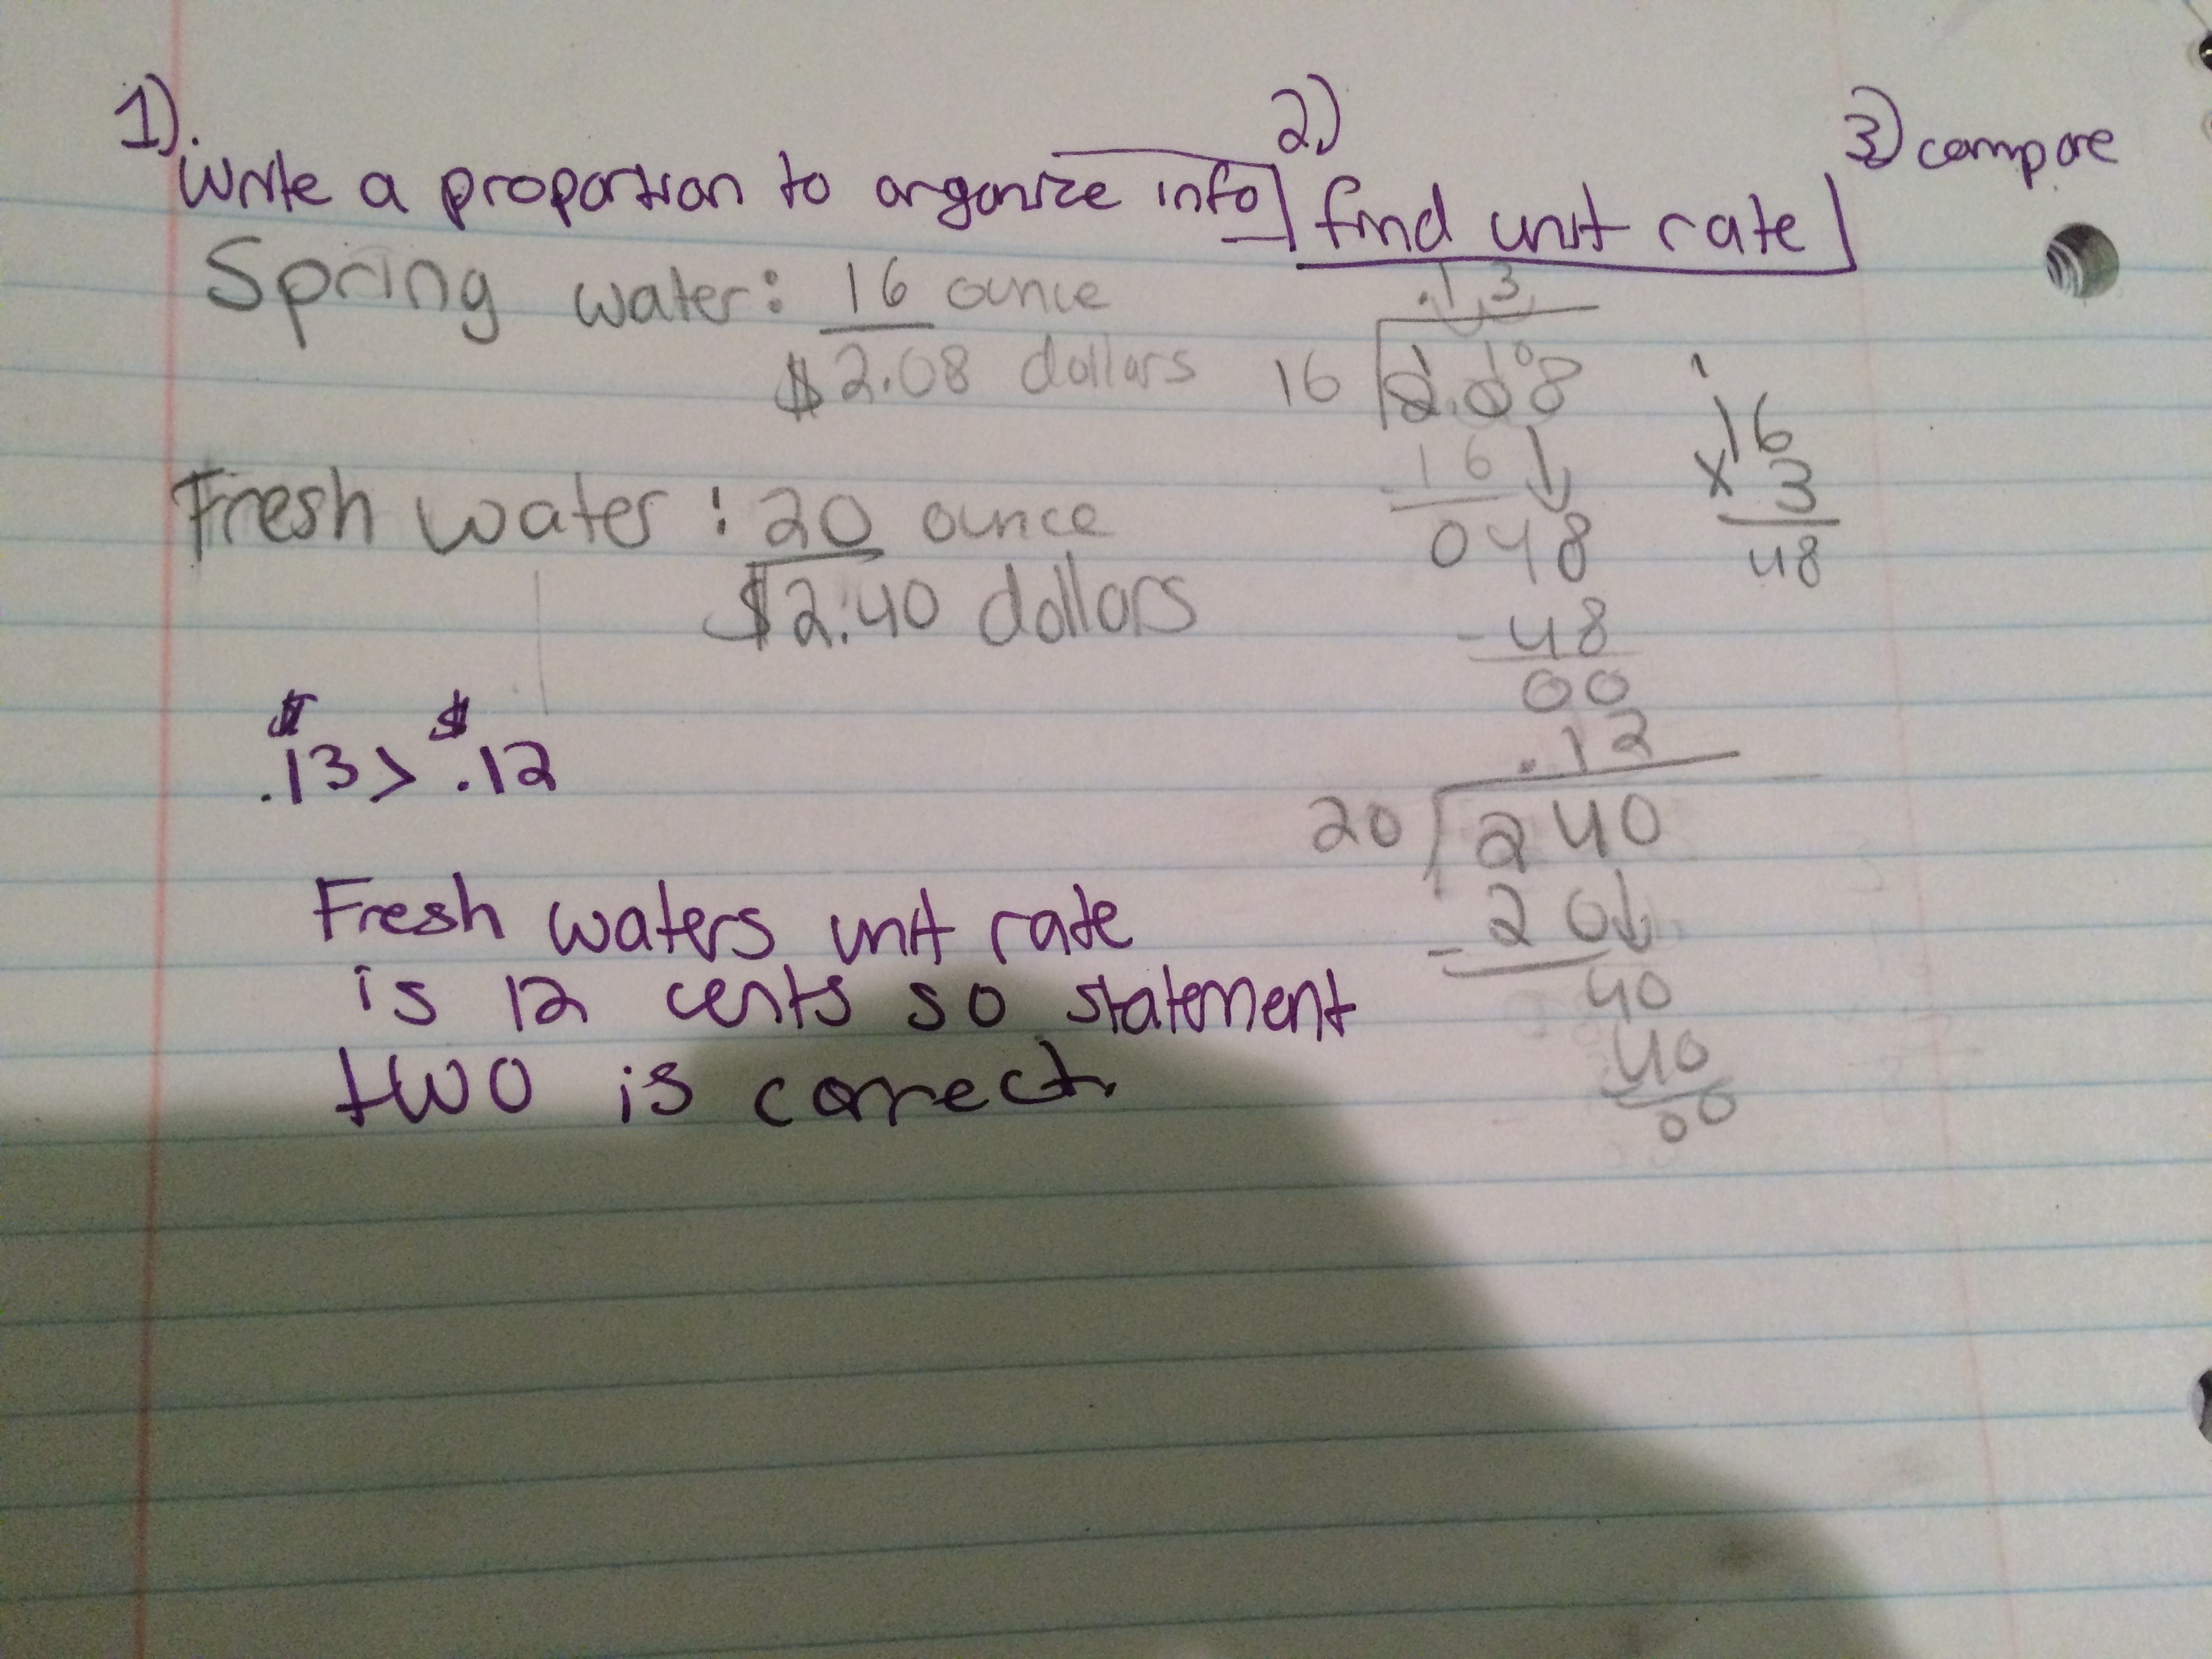 1). 2.) 3) compare
Write a proportion to organize info find unit rate
Spring water: 16 ounce
$2.08 dollars
Fresh water: 20 ounce
$2.40 dollars
$.13 > $.12
Fresh waters unit rate
is 12 cents so statement
two is correct.
.13
16 2.08
10
-16
048
-48
00
1
16
x 3
48
.12
20 240
-20
40
40
00